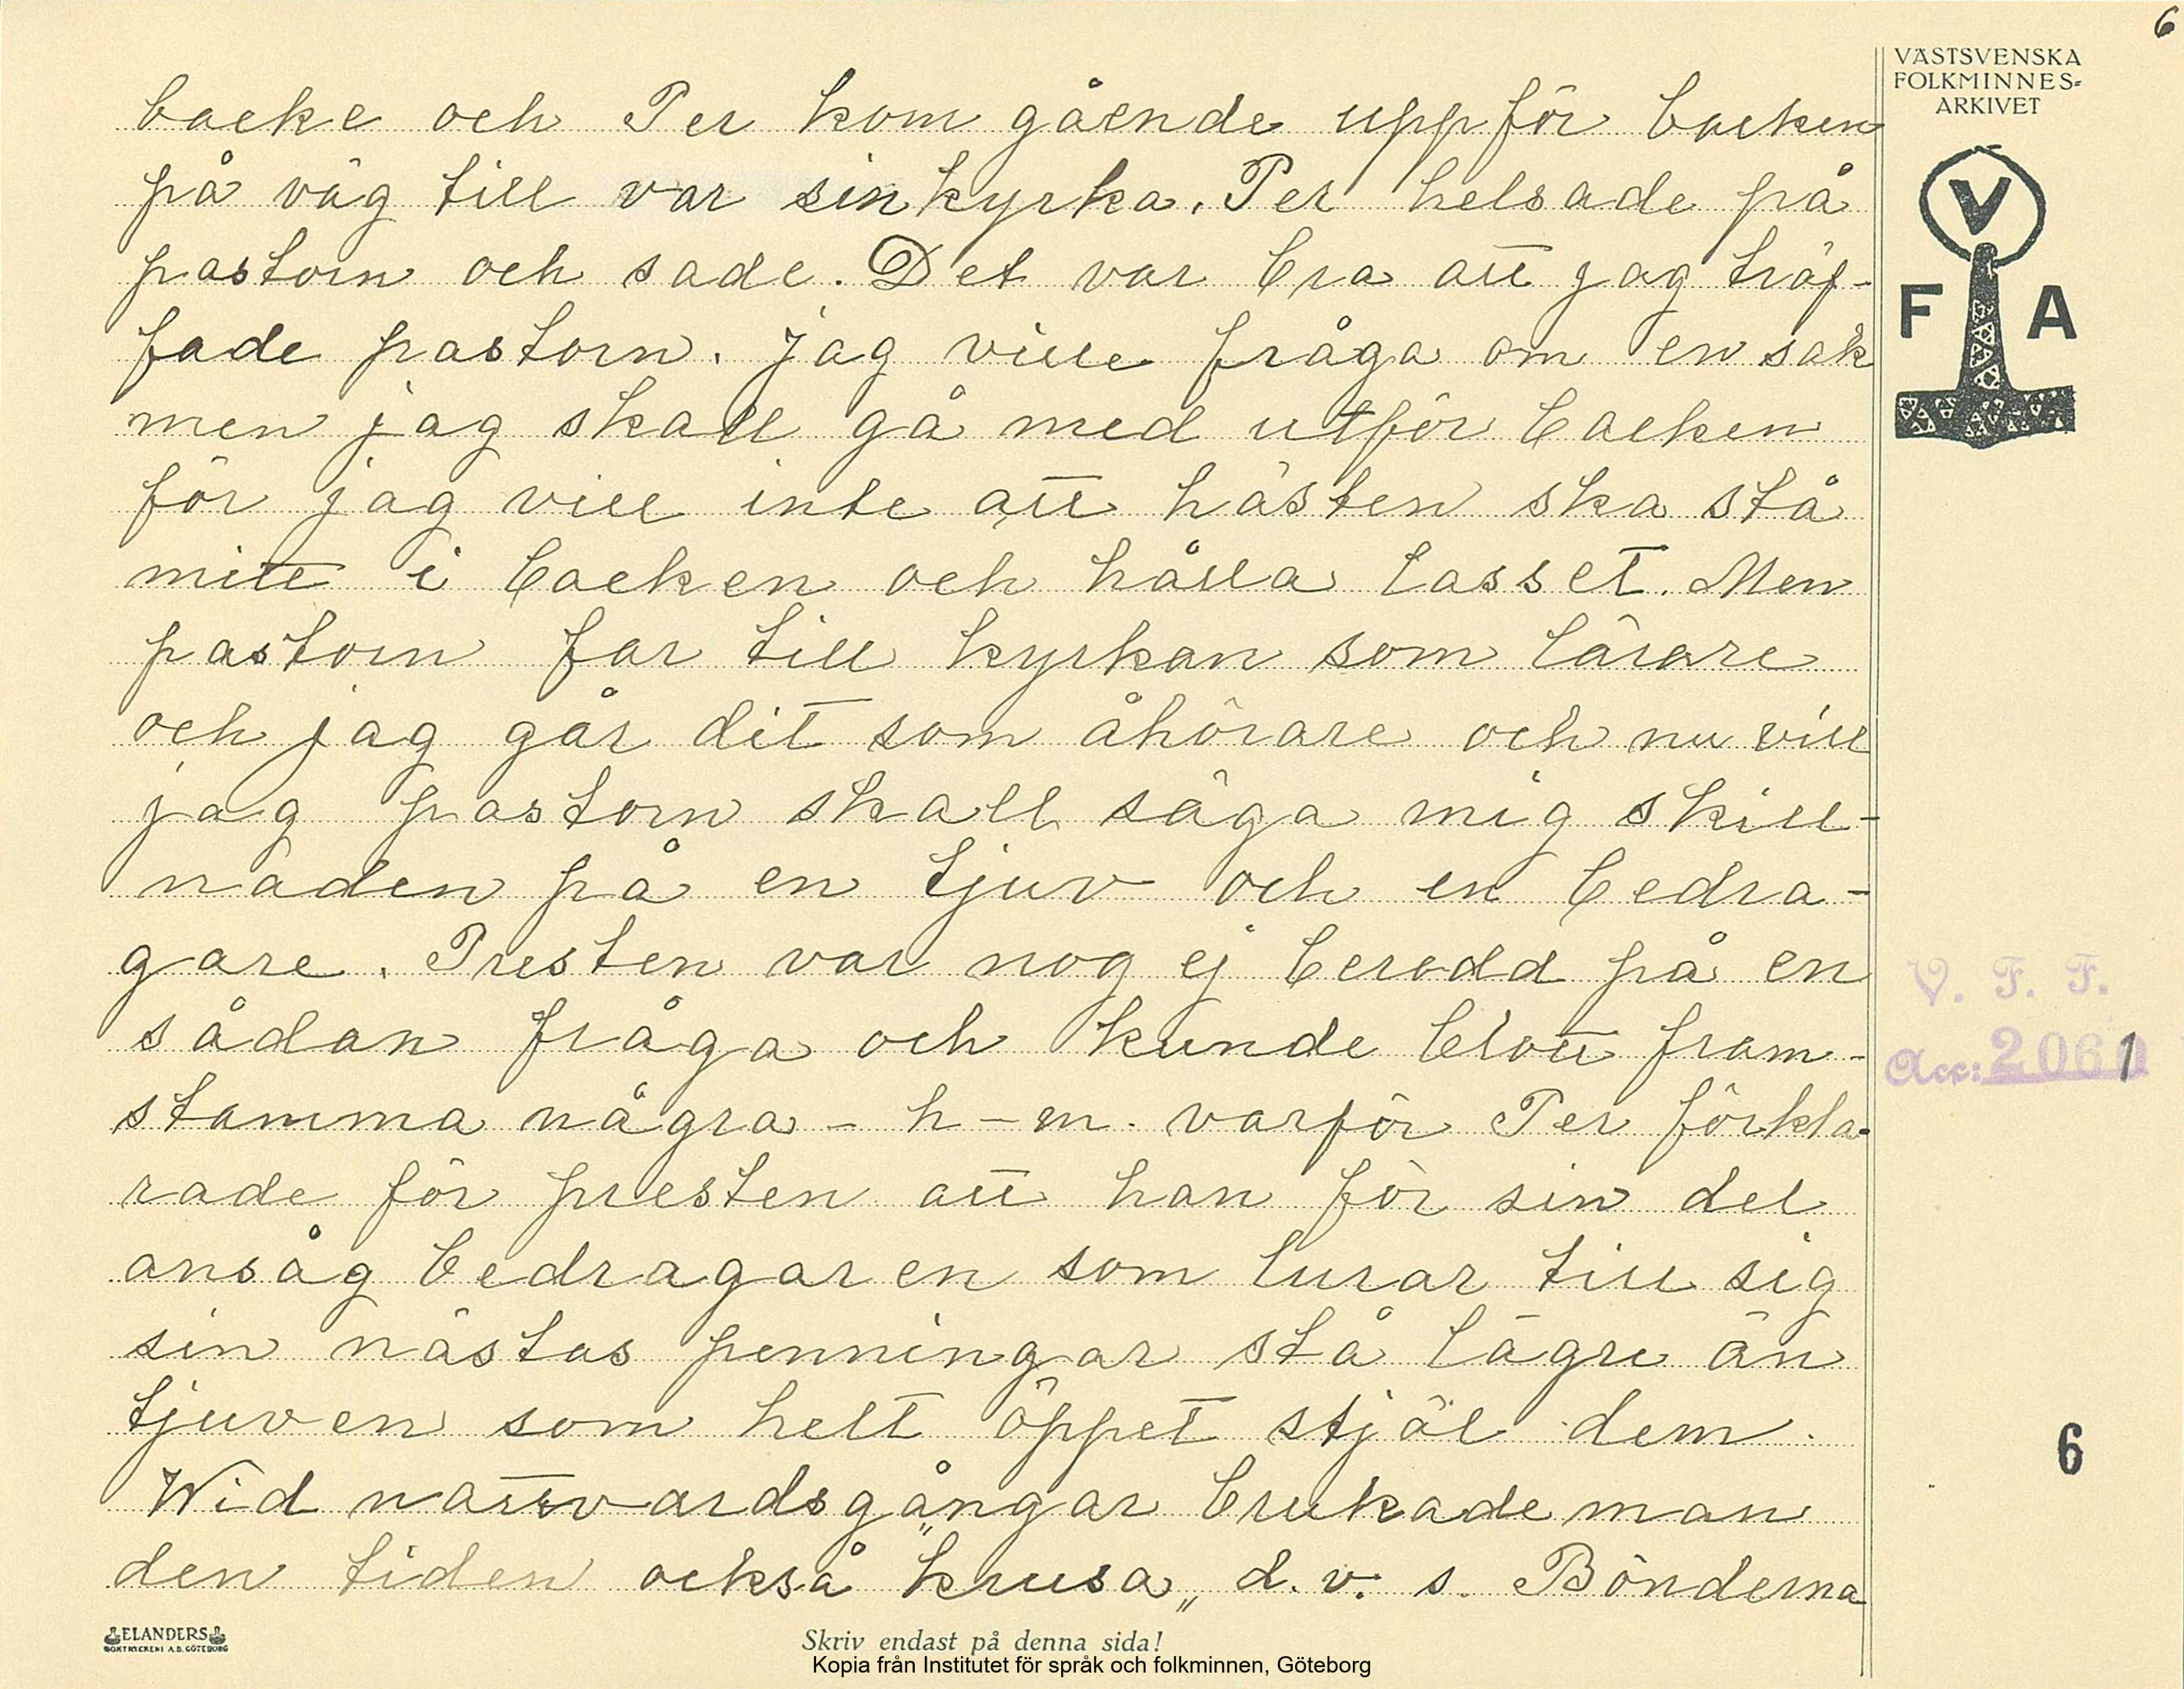 6
VÄSTSVENSKA
FOLKMINNES-
ARKIVET
V
F A
backe och Per kom gående uppför backen
på väg till var sin kyrka. Per helsade på
pastorn och sade. Det var bra att jag träf-
fade pastorn. jag ville fråga om en sak
men jag skall gå med utför backen
för jag vill inte att hästen ska stå
mitt i backen och hålla lasset. Men
pastorn far till kyrkan som lärare
och jag går dit som åhörare och nu vill
jag pastorn skall säga mig skill-
naden på en tjuv och en bedra-
gare. Presten var nog ej beredd på en
sådan fråga och kunde blott fram-
stamma några - h - m. varför Per förkla-
rade för presten att han för sin del
ansåg bedragaren som lurar till sig
sin nästas penningar stå lägre än
tjuven som helt öppet stjäl dem.
Wid nattvardsgångar brukade man
den tiden också "krusa„ d. v. s. Bönderna
V. F. F.
Acc: 2061
6
ELANDERS
BOKTRYCKERI A.B. GÖTEBORG
Skriv endast på denna sida!
Kopia från Institutet för språk och folkminnen, Göteborg